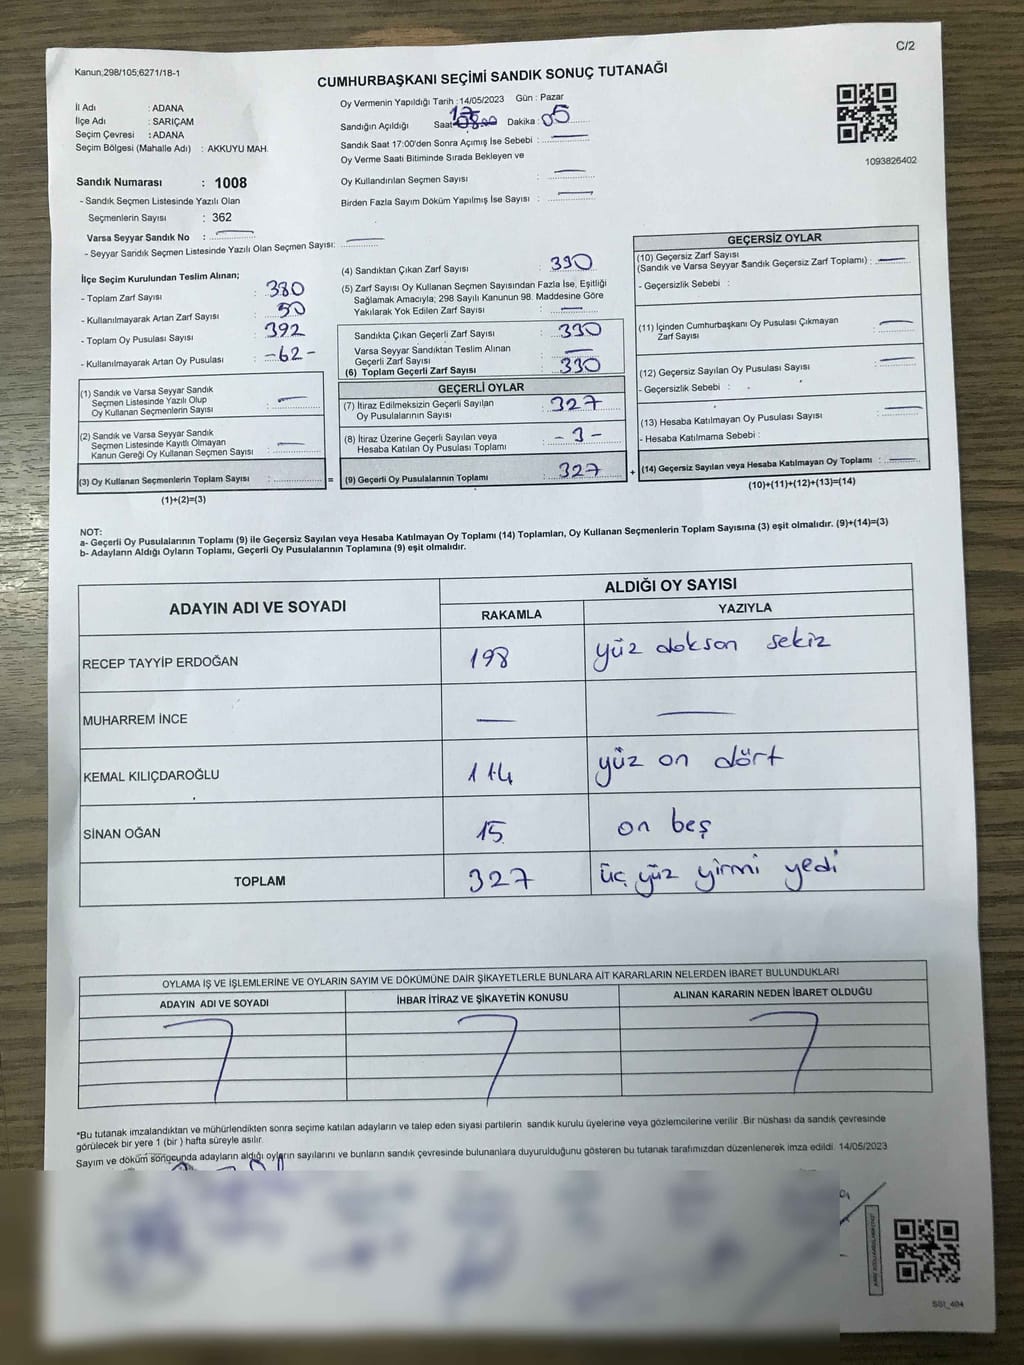 C/2
Kanun;298/105;6271/18-1
CUMHURBAŞKANI SEÇİMİ SANDIK SONUÇ TUTANAĞI
İl Adı : ADANA
İlçe Adı : SARIÇAM
Seçim Çevresi : ADANA
Seçim Bölgesi (Mahalle Adı) : AKKUYU MAH.
Oy Vermenin Yapıldığı Tarih :14/05/2023 Gün : Pazar
Sandığın Açıldığı Saat 17 Dakika : 05
Sandık Saat 17:00'den Sonra Açmış İse Sebebi : —
Oy Verme Saati Bitiminde Sırada Bekleyen ve
Oy Kullandırılan Seçmen Sayısı : —
Birden Fazla Sayım Döküm Yapılmış İse Sayısı : —
1093826402
Sandık Numarası : 1008
- Sandık Seçmen Listesinde Yazılı Olan
Seçmenlerin Sayısı : 362
Varsa Seyyar Sandık No : —
- Seyyar Sandık Seçmen Listesinde Yazılı Olan Seçmen Sayısı: —
İlçe Seçim Kurulundan Teslim Alınan;
- Toplam Zarf Sayısı : 380
- Kullanılmayarak Artan Zarf Sayısı : 50
- Toplam Oy Pusulası Sayısı : 392
- Kullanılmayarak Artan Oy Pusulası : -62-
(1) Sandık ve Varsa Seyyar Sandık
Seçmen Listesinde Yazılı Olup
Oy Kullanan Seçmenlerin Sayısı : —
(2) Sandık ve Varsa Seyyar Sandık
Seçmen Listesinde Kayıtlı Olmayan
Kanun Gereği Oy Kullanan Seçmen Sayısı : —
(3) Oy Kullanan Seçmenlerin Toplam Sayısı :
(1)+(2)=(3)
(4) Sandıktan Çıkan Zarf Sayısı : 330
(5) Zarf Sayısı Oy Kullanan Seçmen Sayısından Fazla İse, Eşitliği
Sağlamak Amacıyla; 298 Sayılı Kanunun 98. Maddesine Göre
Yakılarak Yok Edilen Zarf Sayısı : —
Sandıkta Çıkan Geçerli Zarf Sayısı : 330
Varsa Seyyar Sandıktan Teslim Alınan
Geçerli Zarf Sayısı : —
(6) Toplam Geçerli Zarf Sayısı : 330
GEÇERLİ OYLAR
(7) İtiraz Edilmeksizin Geçerli Sayılan
Oy Pusulalarının Sayısı : 327
(8) İtiraz Üzerine Geçerli Sayılan veya
Hesaba Katılan Oy Pusulası Toplamı : -3-
=
(9) Geçerli Oy Pusulalarının Toplamı : 327
+
GEÇERSİZ OYLAR
(10) Geçersiz Zarf Sayısı
(Sandık ve Varsa Seyyar Sandık Geçersiz Zarf Toplamı) : —
- Geçersizlik Sebebi :
(11) İçinden Cumhurbaşkanı Oy Pusulası Çıkmayan
Zarf Sayısı : —
(12) Geçersiz Sayılan Oy Pusulası Sayısı : —
- Geçersizlik Sebebi :
(13) Hesaba Katılmayan Oy Pusulası Sayısı : —
- Hesaba Katılmama Sebebi :
(14) Geçersiz Sayılan veya Hesaba Katılmayan Oy Toplamı : —
(10)+(11)+(12)+(13)=(14)
NOT:
a- Geçerli Oy Pusulalarının Toplamı (9) ile Geçersiz Sayılan veya Hesaba Katılmayan Oy Toplamı (14) Toplamları, Oy Kullanan Seçmenlerin Toplam Sayısına (3) eşit olmalıdır. (9)+(14)=(3)
b- Adayların Aldığı Oyların Toplamı, Geçerli Oy Pusulalarının Toplamına (9) eşit olmalıdır.
ADAYIN ADI VE SOYADI
ALDIĞI OY SAYISI
RAKAMLA YAZIYLA
RECEP TAYYİP ERDOĞAN 198 yüz doksan sekiz
MUHARREM İNCE — —
KEMAL KILIÇDAROĞLU 114 yüz on dört
SİNAN OĞAN 15 on beş
TOPLAM 327 üç yüz yirmi yedi
OYLAMA İŞ VE İŞLEMLERİNE VE OYLARIN SAYIM VE DÖKÜMÜNE DAİR ŞİKAYETLERLE BUNLARA AİT KARARLARIN NELERDEN İBARET BULUNDUKLARI
ADAYIN ADI VE SOYADI İHBAR İTİRAZ VE ŞİKAYETİN KONUSU ALINAN KARARIN NEDEN İBARET OLDUĞU
*Bu tutanak imzalandıktan ve mühürlendikten sonra seçime katılan adayların ve talep eden siyasi partilerin sandık kurulu üyelerine veya gözlemcilerine verilir. Bir nüshası da sandık çevresinde
görülecek bir yere 1 (bir ) hafta süreyle asılır.
Sayım ve döküm sonucunda adayların aldığı oyların sayılarını ve bunların sandık çevresinde bulunanlara duyurulduğunu gösteren bu tutanak tarafımızdan düzenlenerek imza edildi. 14/05/2023